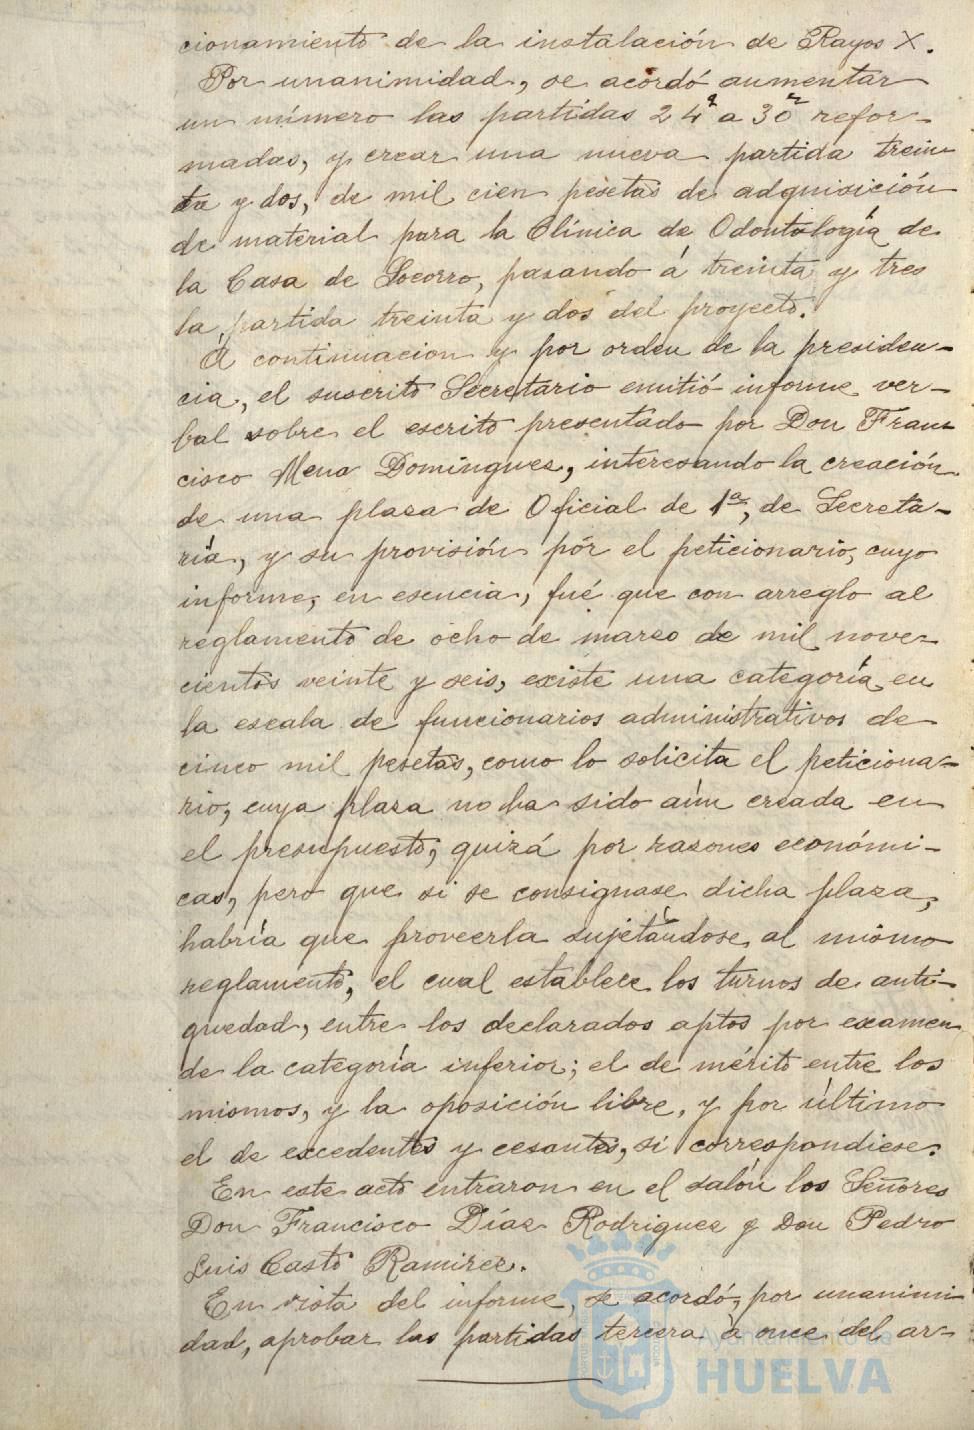 cionamiento de la instalación de Rayos X.
Por unanimidad, se acordó aumentar
un número las partidas 24ª a 30ª refor-
madas, y crear una nueva partida trein
ta y dos, de mil cien pesetas de adquisición
de material para la Clínica de Odontología de
la Casa de Socorro, pasando á treinta y tres
la partida treinta y dos del proyecto.
A continuacion y por orden de la presiden-
cia, el suscrito Secretario emitió informe ver-
bal sobre el escrito presentado por Don Fran
cisco Mena Domingues, interesando la creación
de una plaza de Oficial de 1ª, de Secreta-
ría, y su provisión pór el peticionario, cuyo
informe, en esencia, fué que con arreglo al
reglamento de ocho de marzo de mil nove-
cientos veinte y seis, existe una categoría en
la escala de funcionarios administrativos de
cinco mil pesetas, como lo solicita el peticiona-
rio, cuya plaza no ha sido aún creada en
el presupuesto, quizá por razones económi-
cas, pero que si se consignase dicha plaza,
habría que proveerla sujetándose al mismo
reglamento, el cual establece los turnos de anti-
guedad, entre los declarados aptos por examen
de la categoría inferior; el de mérito entre los
mismos, y la oposición libre, y por último
el de excedentes y cesantes, si correspondiese.
En este acto entraron en el salón los Señores
Don Francisco Díaz Rodriguez y Don Pedro
Luis Casto Ramirez.
En vista del informe, se acordó, por unanimi
dad, aprobar las partidas tercera à once del ar-
Ayuntamiento de
HUELVA